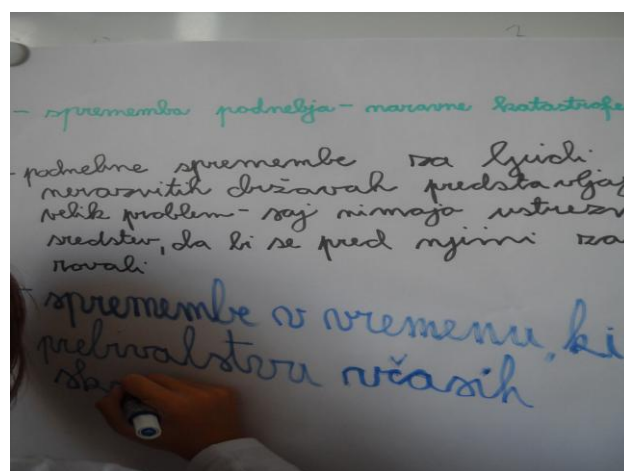 - sprememba podnebja - naravne katastrofe
- podnebne spremembe za ljudi
nerazvitih državah predstavljaj
velik problem - saj nimajo ustrezn
sredstev, da bi se pred njimi za
rovali
- spremembe v vremenu, ki
prebivalstvu včasih